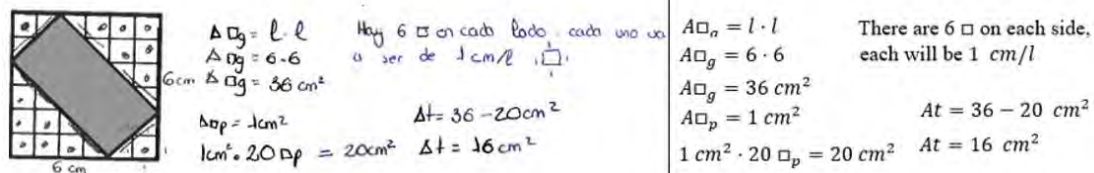 A□g = l · l
A□g = 6 · 6
A□g = 36 cm²
A□p = 1 cm²
1 cm² · 20 □p = 20 cm²
Hay 6 □ en cada lado. cada uno va
a ser de 1 cm/l
At = 36 - 20 cm²
At = 16 cm²
6 cm
6 cm
A□ₐ = l · l
A□g = 6 · 6
A□g = 36 cm²
A□p = 1 cm²
1 cm² · 20 □p = 20 cm²
There are 6 □ on each side,
each will be 1 cm/l
At = 36 − 20 cm²
At = 16 cm²